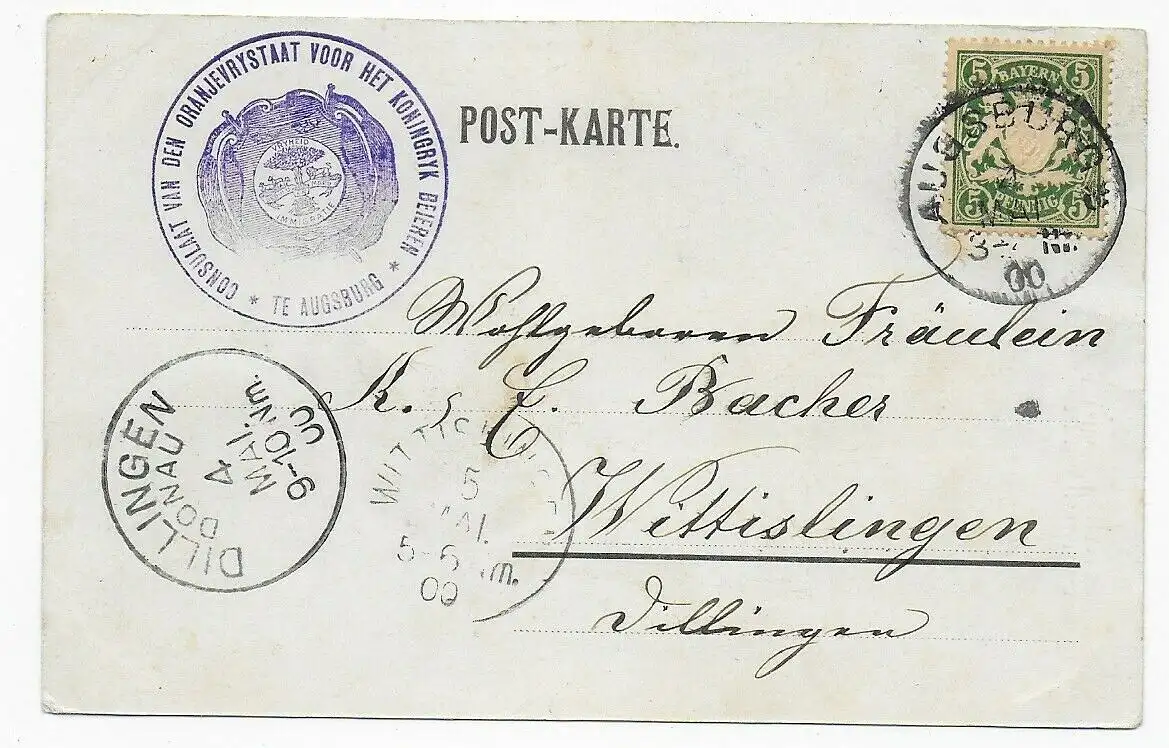 CONSULAAT VAN DEN ORANJEVRYSTAAT VOOR HET KONINGRYK BEIEREN * TE AUGSBURG *
VRYHEID
IMMIGRATIE
POST-KARTE.
5 BAYERN 5
5 PFENNIG 5
AUGSBURG
4
MAI
00
Wohlgeboren Fräulein
K. E. Bacher
Wittislingen
Dillingen
DILLINGEN
DONAU
4
MAI.
9-10 Nm.
00
5
MAI.
5-6 m.
00